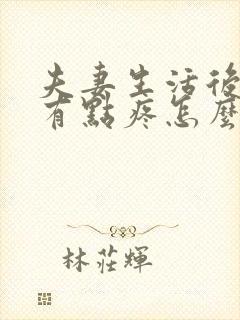 夫妻生活後
有點疼怎麼
林莊輝